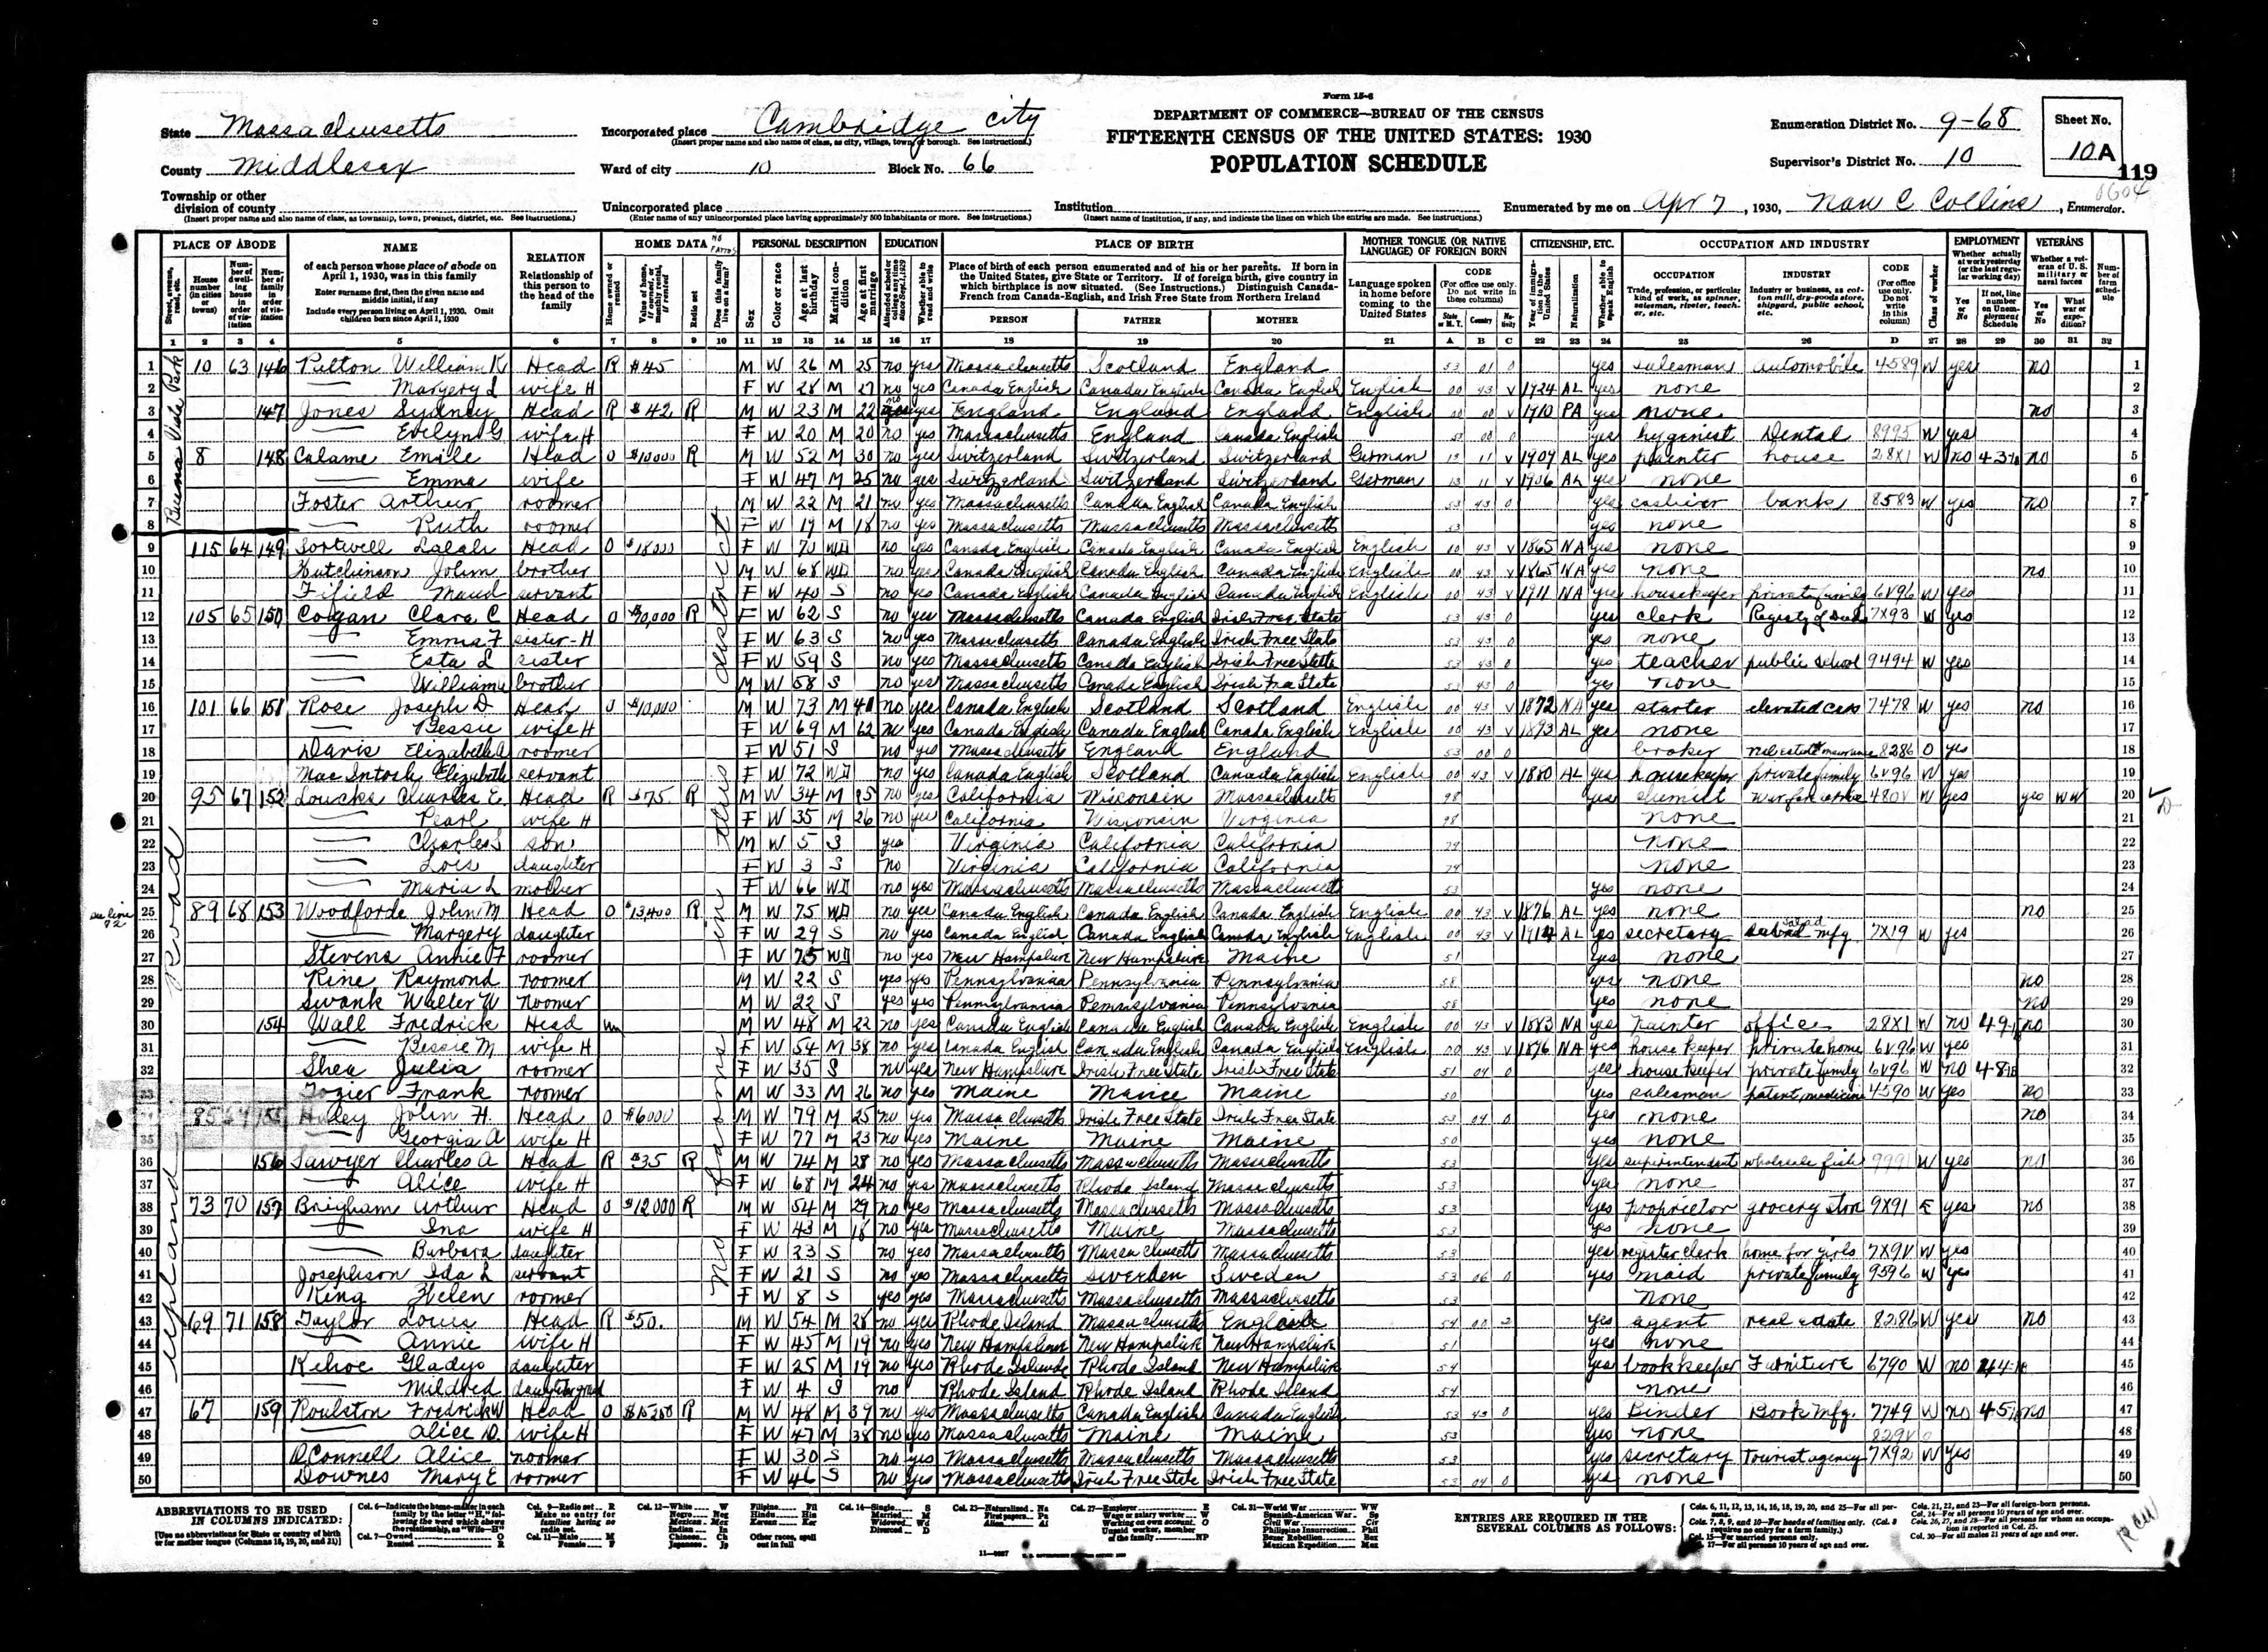 Form 15-6
State Massachusetts
County Middlesex
Township or other division of county
(Insert proper name and also name of class, as township, town, precinct, district, etc. See instructions.)
Incorporated place Cambridge city
(Insert proper name and also name of class, as city, village, town, or borough. See instructions.)
Ward of city 10 Block No. 66
Unincorporated place
(Enter name of any unincorporated place having approximately 500 inhabitants or more. See instructions.)
DEPARTMENT OF COMMERCE—BUREAU OF THE CENSUS
FIFTEENTH CENSUS OF THE UNITED STATES: 1930
POPULATION SCHEDULE
Institution
(Insert name of institution, if any, and indicate the lines on which the entries are made. See instructions.)
Enumeration District No. 9-68
Supervisor's District No. 10
Sheet No. 10 A
119
0604
Enumerated by me on Apr 7, 1930, Nan C Collins, Enumerator.
PLACE OF ABODE NAME RELATION HOME DATA PERSONAL DESCRIPTION EDUCATION PLACE OF BIRTH MOTHER TONGUE (OR NATIVE LANGUAGE) OF FOREIGN BORN CITIZENSHIP, ETC. OCCUPATION AND INDUSTRY EMPLOYMENT VETERANS
Buena Vista Park
upland Road
no farms in this district
1 10 63 146 William K Head R $45 M W 26 M 25 no yes Massachusetts Scotland England 53 01 0 yes salesman automobile 4589 W yes no
2 Margery L wife H F W 28 M 27 no yes Canada English Canada English Canada English English 00 43 V 1924 AL yes none
3 147 Jones Sydney Head R $42 R M W 23 M 22 no yes England England England English 00 00 V 1910 PA yes none no
4 Evelyn G wife H F W 20 M 20 no yes Massachusetts England Canada English 53 00 0 yes hyginist Dental 8995 W yes
5 8 148 Calame Emile Head O $10000 R M W 52 M 30 no yes Switzerland Switzerland Switzerland German 13 11 V 1907 AL yes painter house 28X1 W no no
6 Emma wife F W 47 M 25 no yes Switzerland Switzerland Switzerland German 13 11 V 1906 AL yes none
7 Foster Arthur roomer M W 22 M 21 no yes Massachusetts Canada English Canada English 53 43 0 yes cashier bank 8583 W yes no
8 Ruth roomer F W 19 M 18 no yes Massachusetts Massachusetts Massachusetts 53 yes none
9 115 64 149 Sortwell Lalah Head O $18000 F W 70 WD no yes Canada English Canada English Canada English English 43 V 1865 NA yes none
10 Hutchinson John brother M W 68 WD no yes Canada English Canada English Canada English English 00 43 V 1865 NA yes none no
11 Fifield Maud servant F W 40 S no yes Canada English Canada English Canada English English 00 43 V 1911 NA yes housekeeper private family 6V96 W yes
12 105 65 150 Cogan Clara C Head O R F W 62 S no yes Massachusetts Canada English Irish Free State 53 43 0 yes clerk Registry of Deeds 7X93 W yes
13 Emma F sister-H F W 63 S no yes Massachusetts Canada English Irish Free State 53 43 0 yes none
14 Esta L sister F W 59 S no yes Massachusetts Canada English Irish Free State 53 43 0 yes teacher public school 9494 W yes
15 William brother M W 58 S no yes Massachusetts Canada English Irish Free State 53 43 0 yes none
16 101 66 151 Rose Joseph D Head O $10,000 M W 73 M no yes Canada English Scotland Scotland English 00 43 V 1872 NA yes starter elevated cars 7478 W yes no
17 Bessie wife H F W 69 M 62 no yes Canada English Canada English Canada English English 00 43 V 1893 AL yes none
18 Davis Elizabeth A roomer F W 51 S no yes Massachusetts England England 53 00 0 broker real estate insurance 8286 O yes
19 MacIntosh Elizabeth servant F W 72 WD no yes Canada English Scotland Canada English English 00 43 V 1880 AL yes housekeeper private family 6V96 W yes
20 95 67 152 Loucks Charles E. Head R $75 R M W 34 M 25 no yes California Wisconsin Massachusetts 98 yes chemist 480V W yes yes WW
21 Pearl wife H F W 35 M 26 no yes California Wisconsin Virginia 98 none
22 Charles S son M W 5 S yes Virginia California California 74 none
23 Lois daughter F W 3 S no Virginia California California 74 none
24 Maria L mother F W 66 WD no yes Massachusetts Massachusetts Massachusetts 53 yes none
25 89 68 153 Woodforde John M Head O $13,400 R M W 75 WD no yes Canada English Canada English Canada English English 00 43 V 1876 AL yes none no
26 Margery daughter F W 29 S no yes Canada English Canada English Canada English English 00 43 V 1914 AL yes secretary salad mfg 7X19 W yes
27 Stevens Annie F roomer F W 75 WD no yes New Hampshire New Hampshire Maine 51 yes none
28 Rine Raymond roomer M W 22 S yes yes Pennsylvania Pennsylvania Pennsylvania 58 yes none no
29 Swank Walter W roomer M W 22 S yes yes Pennsylvania Pennsylvania Pennsylvania 58 yes none no
30 154 Wall Fredrick Head M W 48 M 22 no yes Canada English Canada English Canada English English 00 43 V 1883 NA yes painter office 28X1 W no no
31 Bessie M wife H F W 54 M 38 no yes Canada English Canada English Canada English English 00 43 V 1876 NA yes housekeeper private home 6V96 W yes
32 Shea Julia roomer F W 35 S no yes New Hampshire Irish Free State Irish Free State 51 04 0 yes housekeeper private family 6V96 W no
33 Tozier Frank roomer M W 33 M 26 no yes Maine Maine Maine 50 yes salesman patent medicine 4590 W yes no
34 85 69 155 John H. Head O $6000 M W 79 M 25 no yes Massachusetts Irish Free State Irish Free State 53 04 0 yes none no
35 Georgia A wife H F W 77 M 23 no yes Maine Maine Maine 50 yes none
36 156 Sawyer Charles A Head R $35 R M W 74 M 28 no yes Massachusetts Massachusetts Massachusetts 53 yes superintendent wholesale fish 9991 W yes no
37 Alice wife H F W 68 M 24 no yes Massachusetts Rhode Island Massachusetts 53 yes none
38 73 70 157 Brigham Arthur Head O $12000 R M W 54 M 29 no yes Massachusetts Massachusetts Massachusetts 53 yes proprietor grocery store 9X91 E yes no
39 Ina wife H F W 43 M 18 no yes Massachusetts Maine Massachusetts 53 yes none
40 Barbara daughter F W 23 S no yes Massachusetts Massachusetts Massachusetts 53 yes register clerk home for girls 7X9V W yes
41 Josephson Ida L servant F W 21 S no yes Massachusetts Sweeden Sweden 53 06 0 yes maid private family 9596 W yes
42 King Helen roomer F W 8 S yes yes Massachusetts Massachusetts Massachusetts 53 none
43 69 71 158 Taylor Louis Head R $50. M W 54 M 28 no yes Rhode Island Massachusetts English 54 00 2 yes agent real estate 8286 W yes no
44 Annie wife H F W 45 M 19 no yes New Hampshire New Hampshire New Hampshire 51 yes none
45 Kehoe Gladys daughter F W 25 M 19 no yes Rhode Island Rhode Island New Hampshire 54 yes bookkeeper Furniture 6790 W no
46 Mildred daughter grand F W 4 S no Rhode Island Rhode Island Rhode Island 54 none
47 67 159 Roulston Fredrick W Head O R M W 48 M 39 no yes Massachusetts Canada English Canada English 53 43 0 yes Binder Book Mfg. 7749 W no no
48 Alice D. wife H F W 47 M 38 no yes Massachusetts Maine Maine 53 yes none 829V O
49 OConnell Alice roomer F W 30 S no yes Massachusetts Massachusetts Massachusetts 53 yes secretary Tourist agency 7X92 W yes
50 Downes Mary E roomer F W 46 S no yes Massachusetts Irish Free State Irish Free State 53 04 0 yes none
ABBREVIATIONS TO BE USED IN COLUMNS INDICATED:
ENTRIES ARE REQUIRED IN THE SEVERAL COLUMNS AS FOLLOWS: